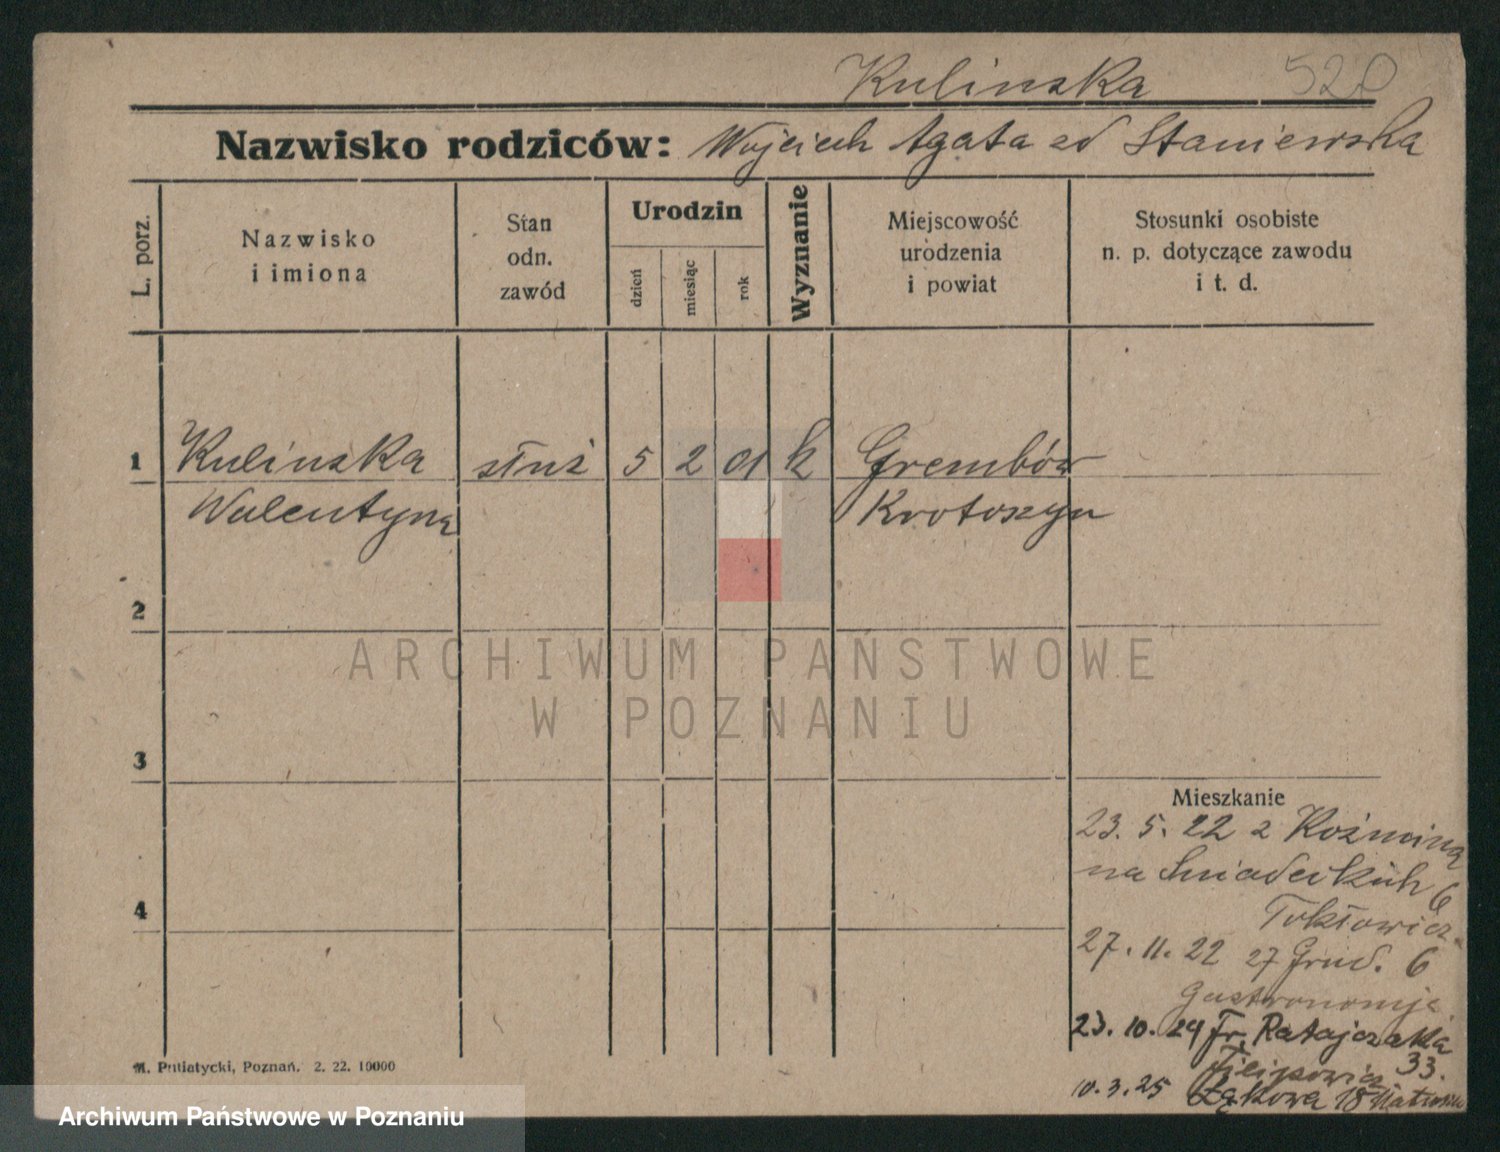 Kulinska 520
Nazwisko rodziców: Wojciech Agata zd Staniewska
L. porz.
Nazwisko
i imiona
Stan
odn.
zawód
Urodzin
dzień
miesiąc
rok
Wyznanie
Miejscowość
urodzenia
i powiat
Stosunki osobiste
n. p. dotyczące zawodu
i t. d.
1 Kulinska służ 5 2 01 k Grembów
Walentyna Krotoszyn
2
ARCHIWUM PAŃSTWOWE
W POZNANIU
3
Mieszkanie
23. 5. 22 z Koźmina
na Sniadeckich 6
4
27. 11. 22 27 Grud. 6
Gastronomja
23. 10. 24 Fr. Ratajczaka
33.
Filipowicz
10. 3. 25 Łąkowa 18
M. Putiatycki, Poznań. 2. 22. 10000
Archiwum Państwowe w Poznaniu